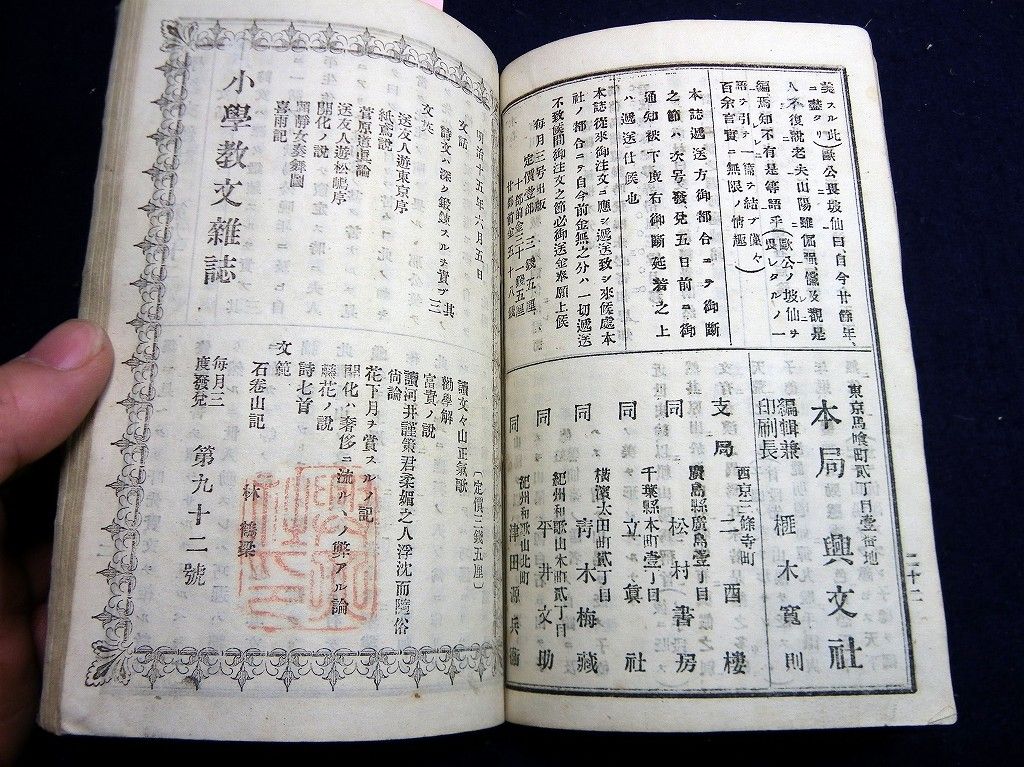 美スル此)歐公畏坡仙曰自今廿餘年、
ニ盡クリ)
人不復說老夫、山陽雖倔强儒及觀是
編、焉知不有是等語乎(歐公ノ坡仙ヲ
畏レタルノ一
語ヲ引テ一篇ヲ結ブ僅々
百余言實ニ無限ノ情趣)
本誌遞送方御都合ニテ御斷
之節ハ次号發兌五日前ニ御
通知被下度右御斷延着之上
ハ遞送仕候也
本誌從來御注文ニ應シ遞送致シ來候處本
社ノ都合ニテ自今前金無之分ハ一切遞送
不致候間御注文之節必御送金奉願上候
每月三号出版
定價壹部三錢五厘
東京馬喰町貳丁目壹番地
本局 興文社
編輯兼
印刷長 榧木寬則
西京三條寺町
支局 二酉樓
廣島縣廣島壹丁目
同 松村書房
千葉縣本町壹丁目
同 立眞社
橫濱太田町貳丁目
同 靑木梅藏
紀州和歌山本町貳丁目
同 平井文助
紀州和歌山北町
同 津田源兵衞
二十二
明治十五年六月五日
文話
詩文ハ深ク鍛鍊スルヲ貴ブ 其三
文英
送友人遊東京序
紙鳶說
菅原道眞論
送友人遊松嶋序
開化ノ說
題靜女奏舞圖
喜雨記
小學敎文雜誌
(定價三錢五厘)
讀文々山正氣歌
勸學解
富貴ノ說
讀河井謹策君柔媚之人浮沈而隨俗
尙論
花下月ヲ賞スルノ記
開化ハ奢侈ニ流ルヽノ弊アル論
蘇花ノ說
詩七首
文範
石卷山記 林 鶴梁
每月三
度發兌
第九十二號